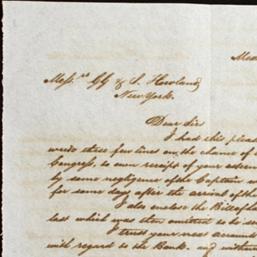 Mess.rs GG & S. Howland
New York.
Dear Sir
I had this pleas
these few lines on the chance of
Congress, to own receipt of your esteem
by some negligence of the Captain
for some days after the arrival of the
I also enclose the Bill of la
last which was then omitted to be
I trust your next
with regard to the Bank. and without